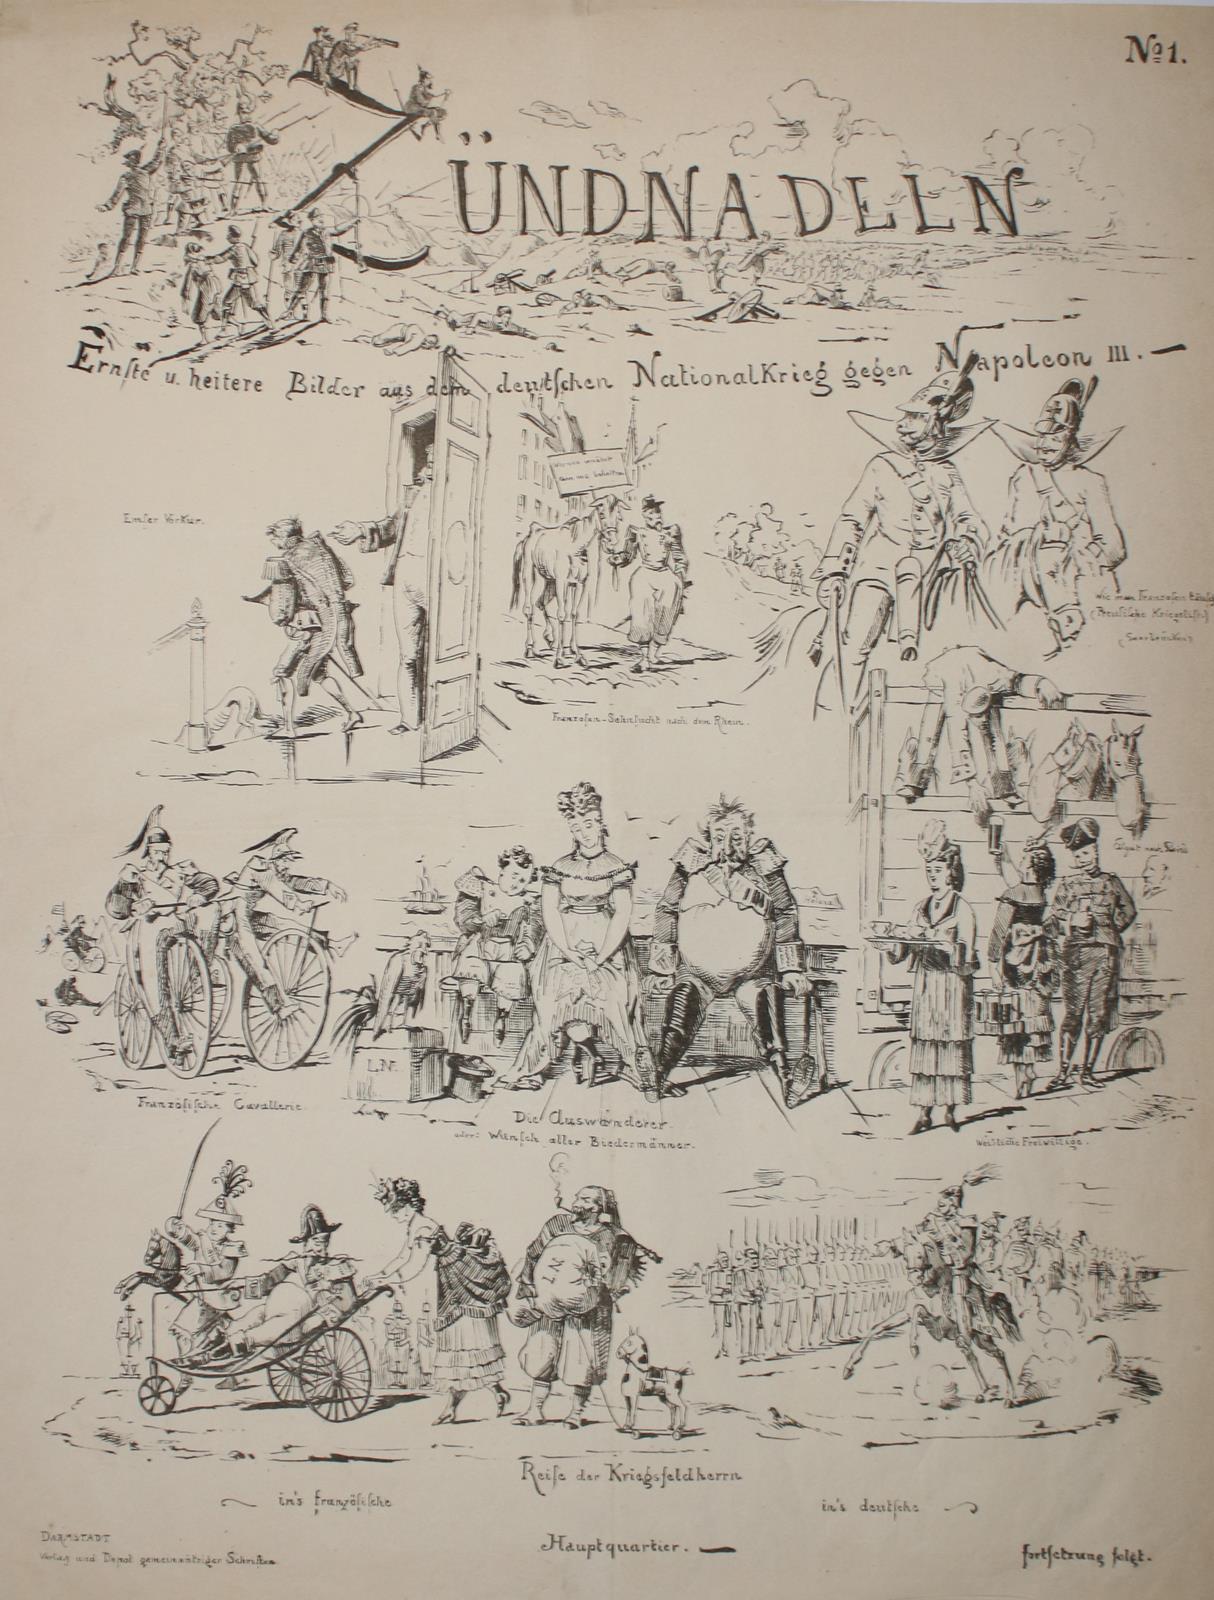 No 1.
ZÜNDNADELN
Ernſte u. heitere Bilder aus dem deutſchen NationalKrieg gegen Napoleon III. —
Emſer Vorkur.
Franzoſen-Sehnſucht nach dem Rhein.
Wie man Franzoſen
(Preuſiſche Kriegsliſt)
(Saarbrücken)
Franzöſiſche Cavallerie.
L.N.
Die Auswanderer.
oder: Wunſch aller Biedermänner.
Weibliche Freiwillige.
N
Reiſe der Kriegsfeldherrn
in's franzöſiſche
in's deutſche
Hauptquartier. —
DARMSTADT
Verlag und Depot gemeinnütziger Schriften
fortſetzung folgt.